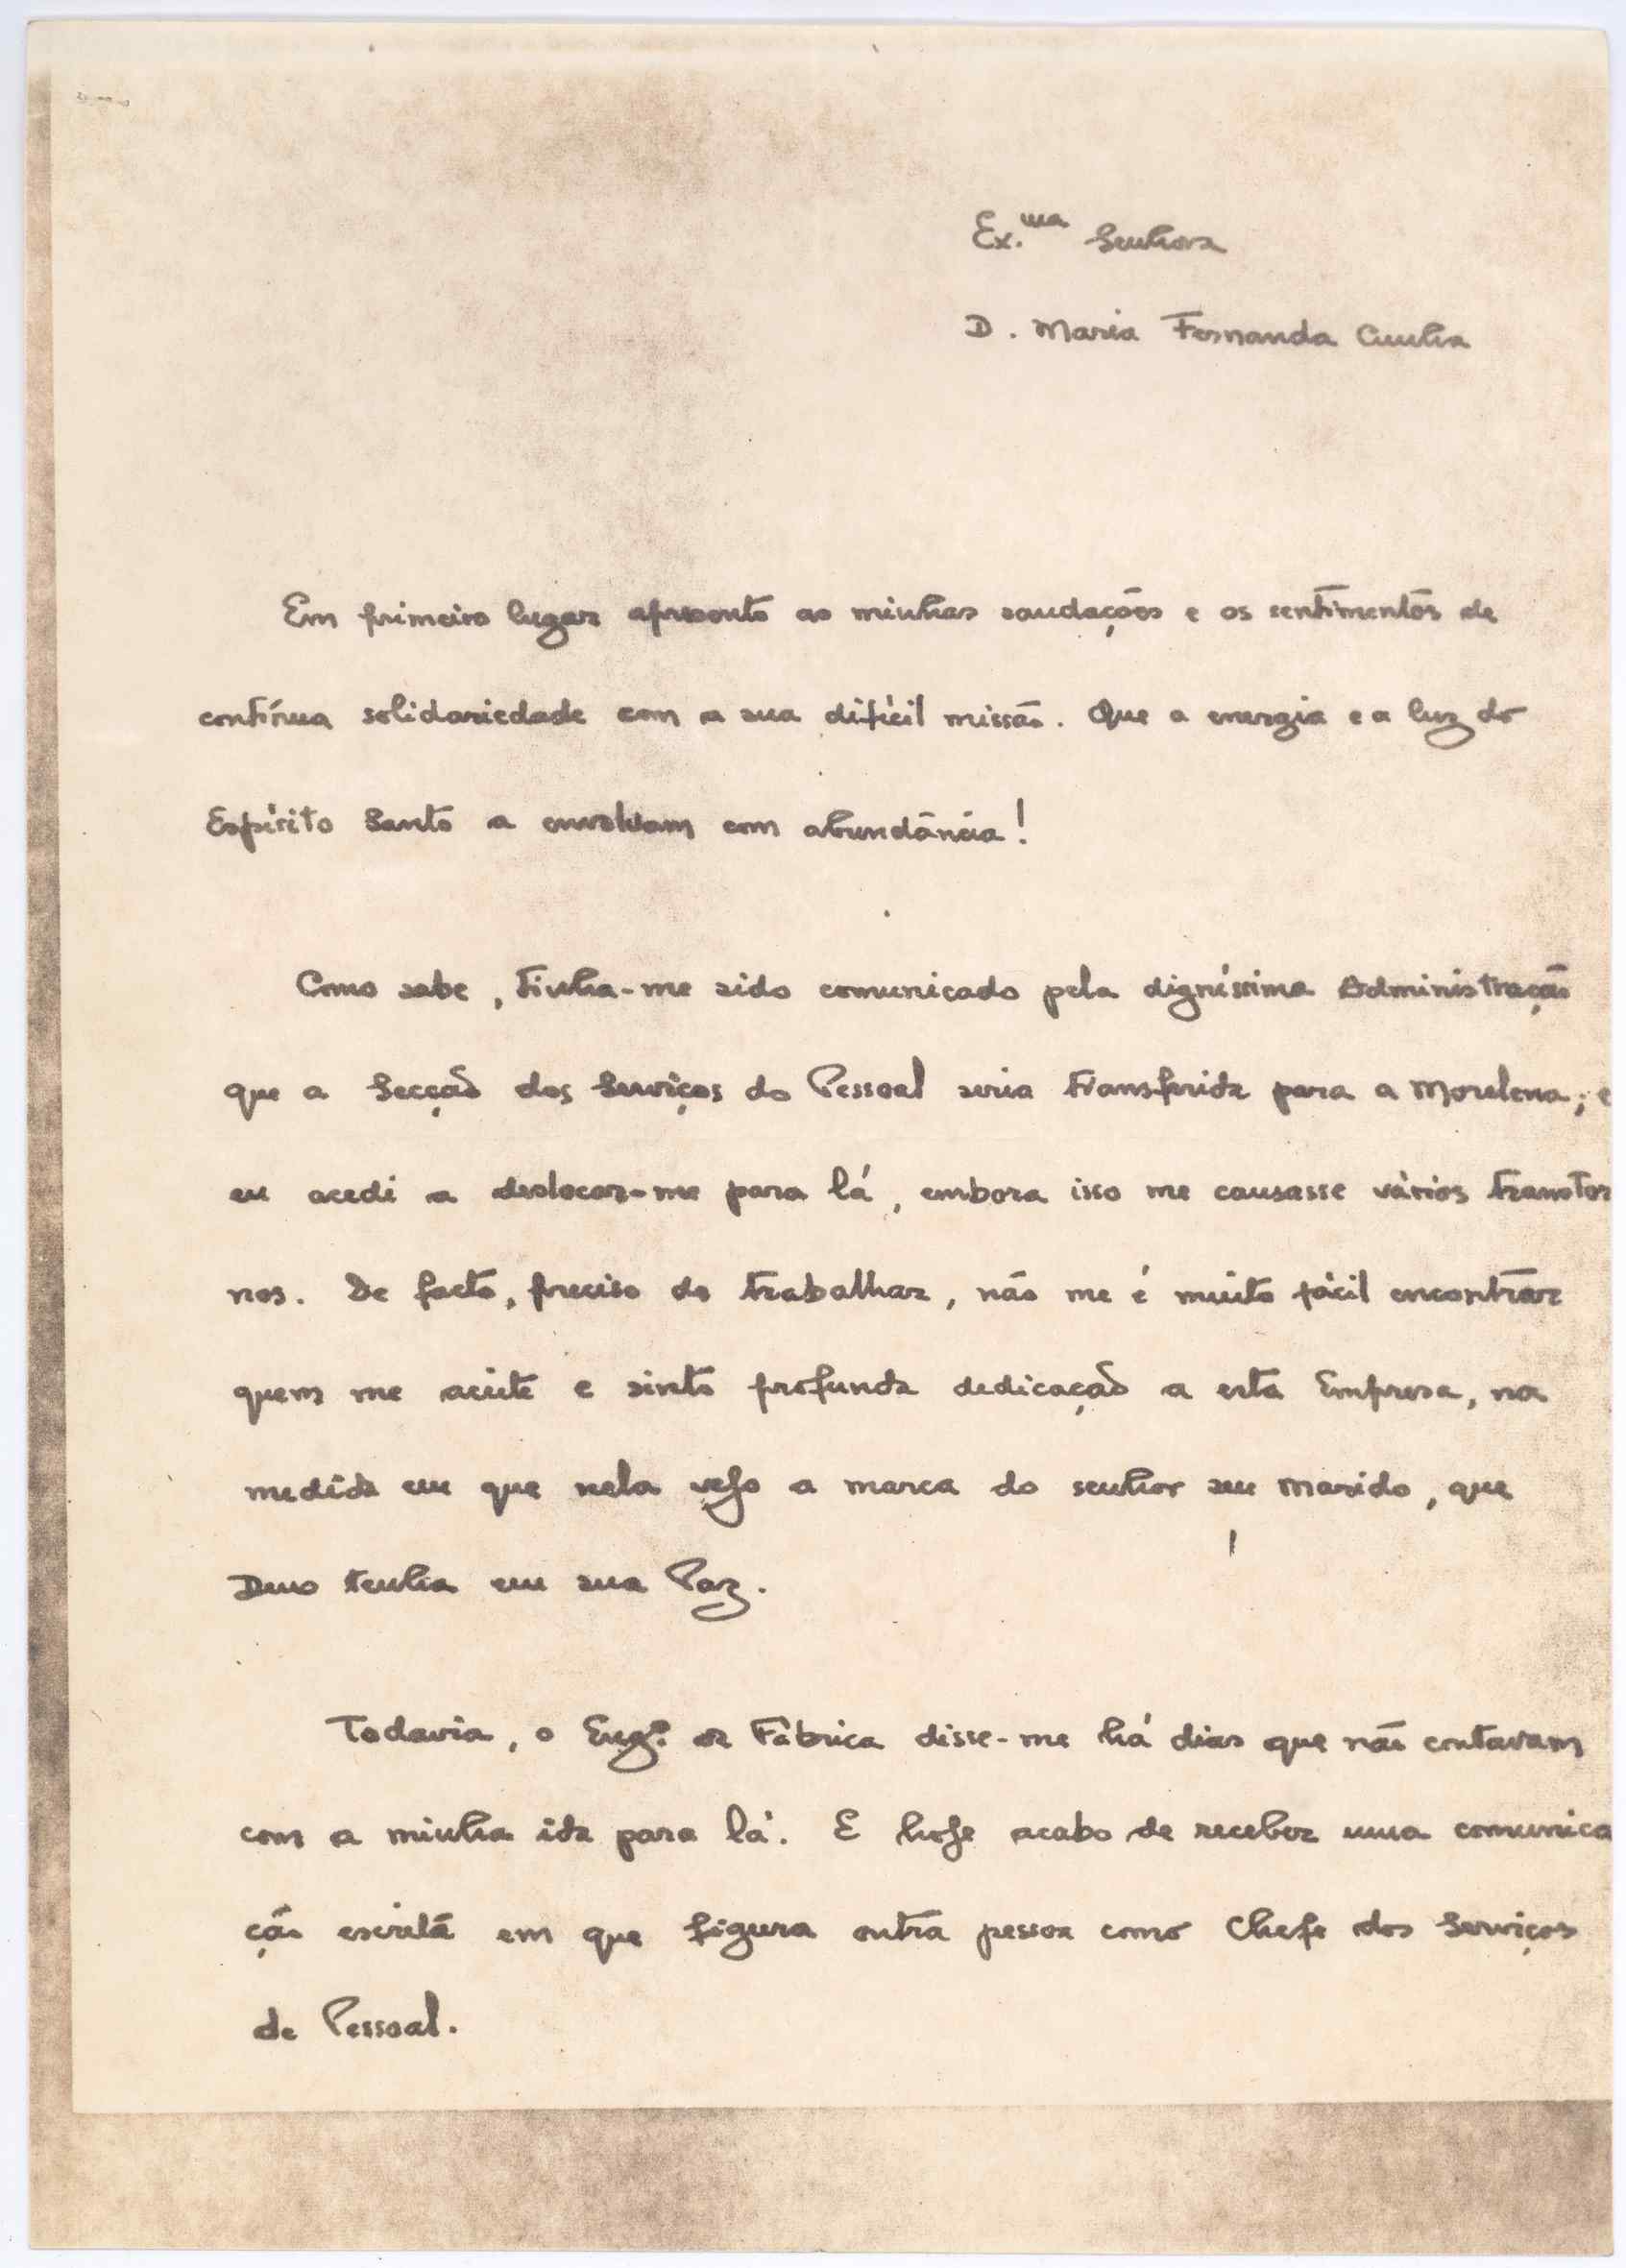 Ex.ma Senhora
D. Maria Fernanda Cunha
Em primeiro lugar apresento as minhas saudações e os sentimentos de
contínua solidariedade com a sua difícil missão. Que a energia e a luz do
Espírito Santo a envolvam com abundância!
Como sabe, tinha-me sido comunicado pela digníssima Administração
que a Secção dos Serviços do Pessoal seria transferida para a Morelena; e
eu acedi a deslocar-me para lá, embora isso me causasse vários transtor
nos. De facto, preciso de trabalhar, não me é muito fácil encontrar
quem me aceite e sinto profunda dedicação a esta Empresa, na
medida em que nela vejo a marca do senhor seu Marido, que
Deus tenha em sua Paz.
Todavia, o Eng.º da Fábrica disse-me há dias que não contavam
com a minha ida para lá. E hoje acabo de receber uma comunica
ção escrita em que figura outra pessoa como Chefe dos Serviços
de Pessoal.